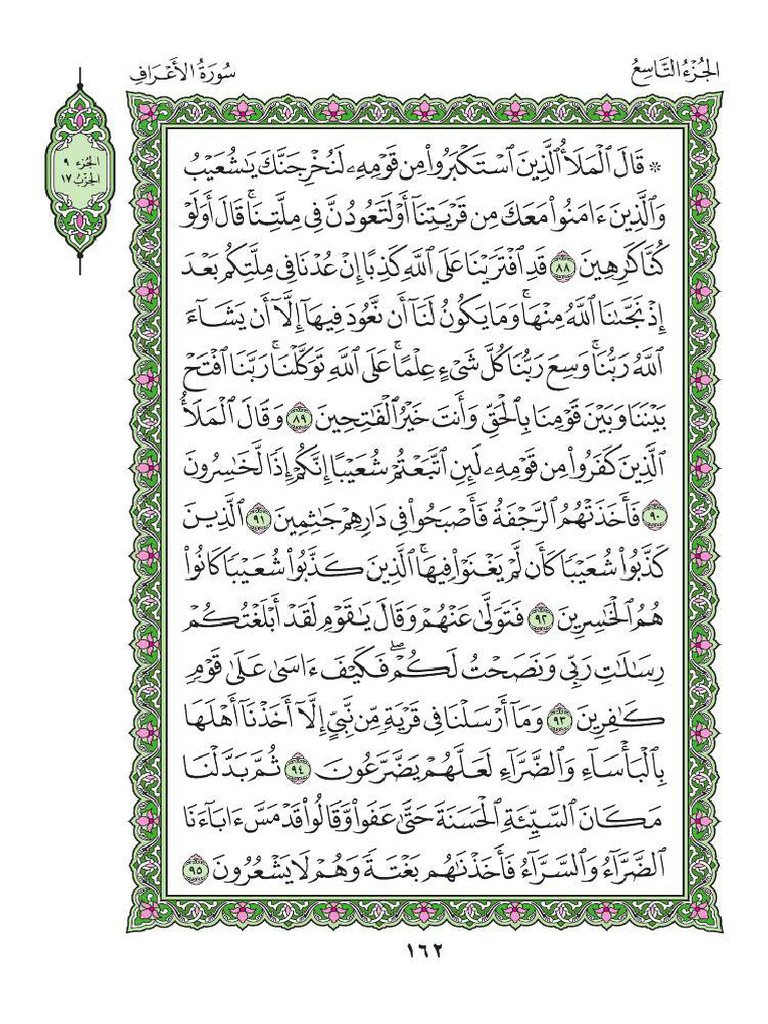 الجُزْءُ التَّاسِعُ
سُورَةُ الأَعْرَافِ
الجزء ٩
الحزب ١٧
۞ قَالَ ٱلْمَلَأُ ٱلَّذِينَ ٱسْتَكْبَرُوا۟ مِن قَوْمِهِۦ لَنُخْرِجَنَّكَ يَٰشُعَيْبُ
وَٱلَّذِينَ ءَامَنُوا۟ مَعَكَ مِن قَرْيَتِنَآ أَوْ لَتَعُودُنَّ فِى مِلَّتِنَا ۚ قَالَ أَوَلَوْ
كُنَّا كَٰرِهِينَ ٨٨ قَدِ ٱفْتَرَيْنَا عَلَى ٱللَّهِ كَذِبًا إِنْ عُدْنَا فِى مِلَّتِكُم بَعْدَ
إِذْ نَجَّىٰنَا ٱللَّهُ مِنْهَا ۚ وَمَا يَكُونُ لَنَآ أَن نَّعُودَ فِيهَآ إِلَّآ أَن يَشَآءَ
ٱللَّهُ رَبُّنَا ۚ وَسِعَ رَبُّنَا كُلَّ شَىْءٍ عِلْمًا ۚ عَلَى ٱللَّهِ تَوَكَّلْنَا ۚ رَبَّنَا ٱفْتَحْ
بَيْنَنَا وَبَيْنَ قَوْمِنَا بِٱلْحَقِّ وَأَنتَ خَيْرُ ٱلْفَٰتِحِينَ ٨٩ وَقَالَ ٱلْمَلَأُ
ٱلَّذِينَ كَفَرُوا۟ مِن قَوْمِهِۦ لَئِنِ ٱتَّبَعْتُمْ شُعَيْبًا إِنَّكُمْ إِذًا لَّخَٰسِرُونَ
٩٠ فَأَخَذَتْهُمُ ٱلرَّجْفَةُ فَأَصْبَحُوا۟ فِى دَارِهِمْ جَٰثِمِينَ ٩١ ٱلَّذِينَ
كَذَّبُوا۟ شُعَيْبًا كَأَن لَّمْ يَغْنَوْا۟ فِيهَا ۚ ٱلَّذِينَ كَذَّبُوا۟ شُعَيْبًا كَانُوا۟
هُمُ ٱلْخَٰسِرِينَ ٩٢ فَتَوَلَّىٰ عَنْهُمْ وَقَالَ يَٰقَوْمِ لَقَدْ أَبْلَغْتُكُمْ
رِسَٰلَٰتِ رَبِّى وَنَصَحْتُ لَكُمْ ۖ فَكَيْفَ ءَاسَىٰ عَلَىٰ قَوْمٍ
كَٰفِرِينَ ٩٣ وَمَآ أَرْسَلْنَا فِى قَرْيَةٍ مِّن نَّبِىٍّ إِلَّآ أَخَذْنَآ أَهْلَهَا
بِٱلْبَأْسَآءِ وَٱلضَّرَّآءِ لَعَلَّهُمْ يَضَّرَّعُونَ ٩٤ ثُمَّ بَدَّلْنَا
مَكَانَ ٱلسَّيِّئَةِ ٱلْحَسَنَةَ حَتَّىٰ عَفَوا۟ وَّقَالُوا۟ قَدْ مَسَّ ءَابَآءَنَا
ٱلضَّرَّآءُ وَٱلسَّرَّآءُ فَأَخَذْنَٰهُم بَغْتَةً وَهُمْ لَا يَشْعُرُونَ ٩٥
١٦٢